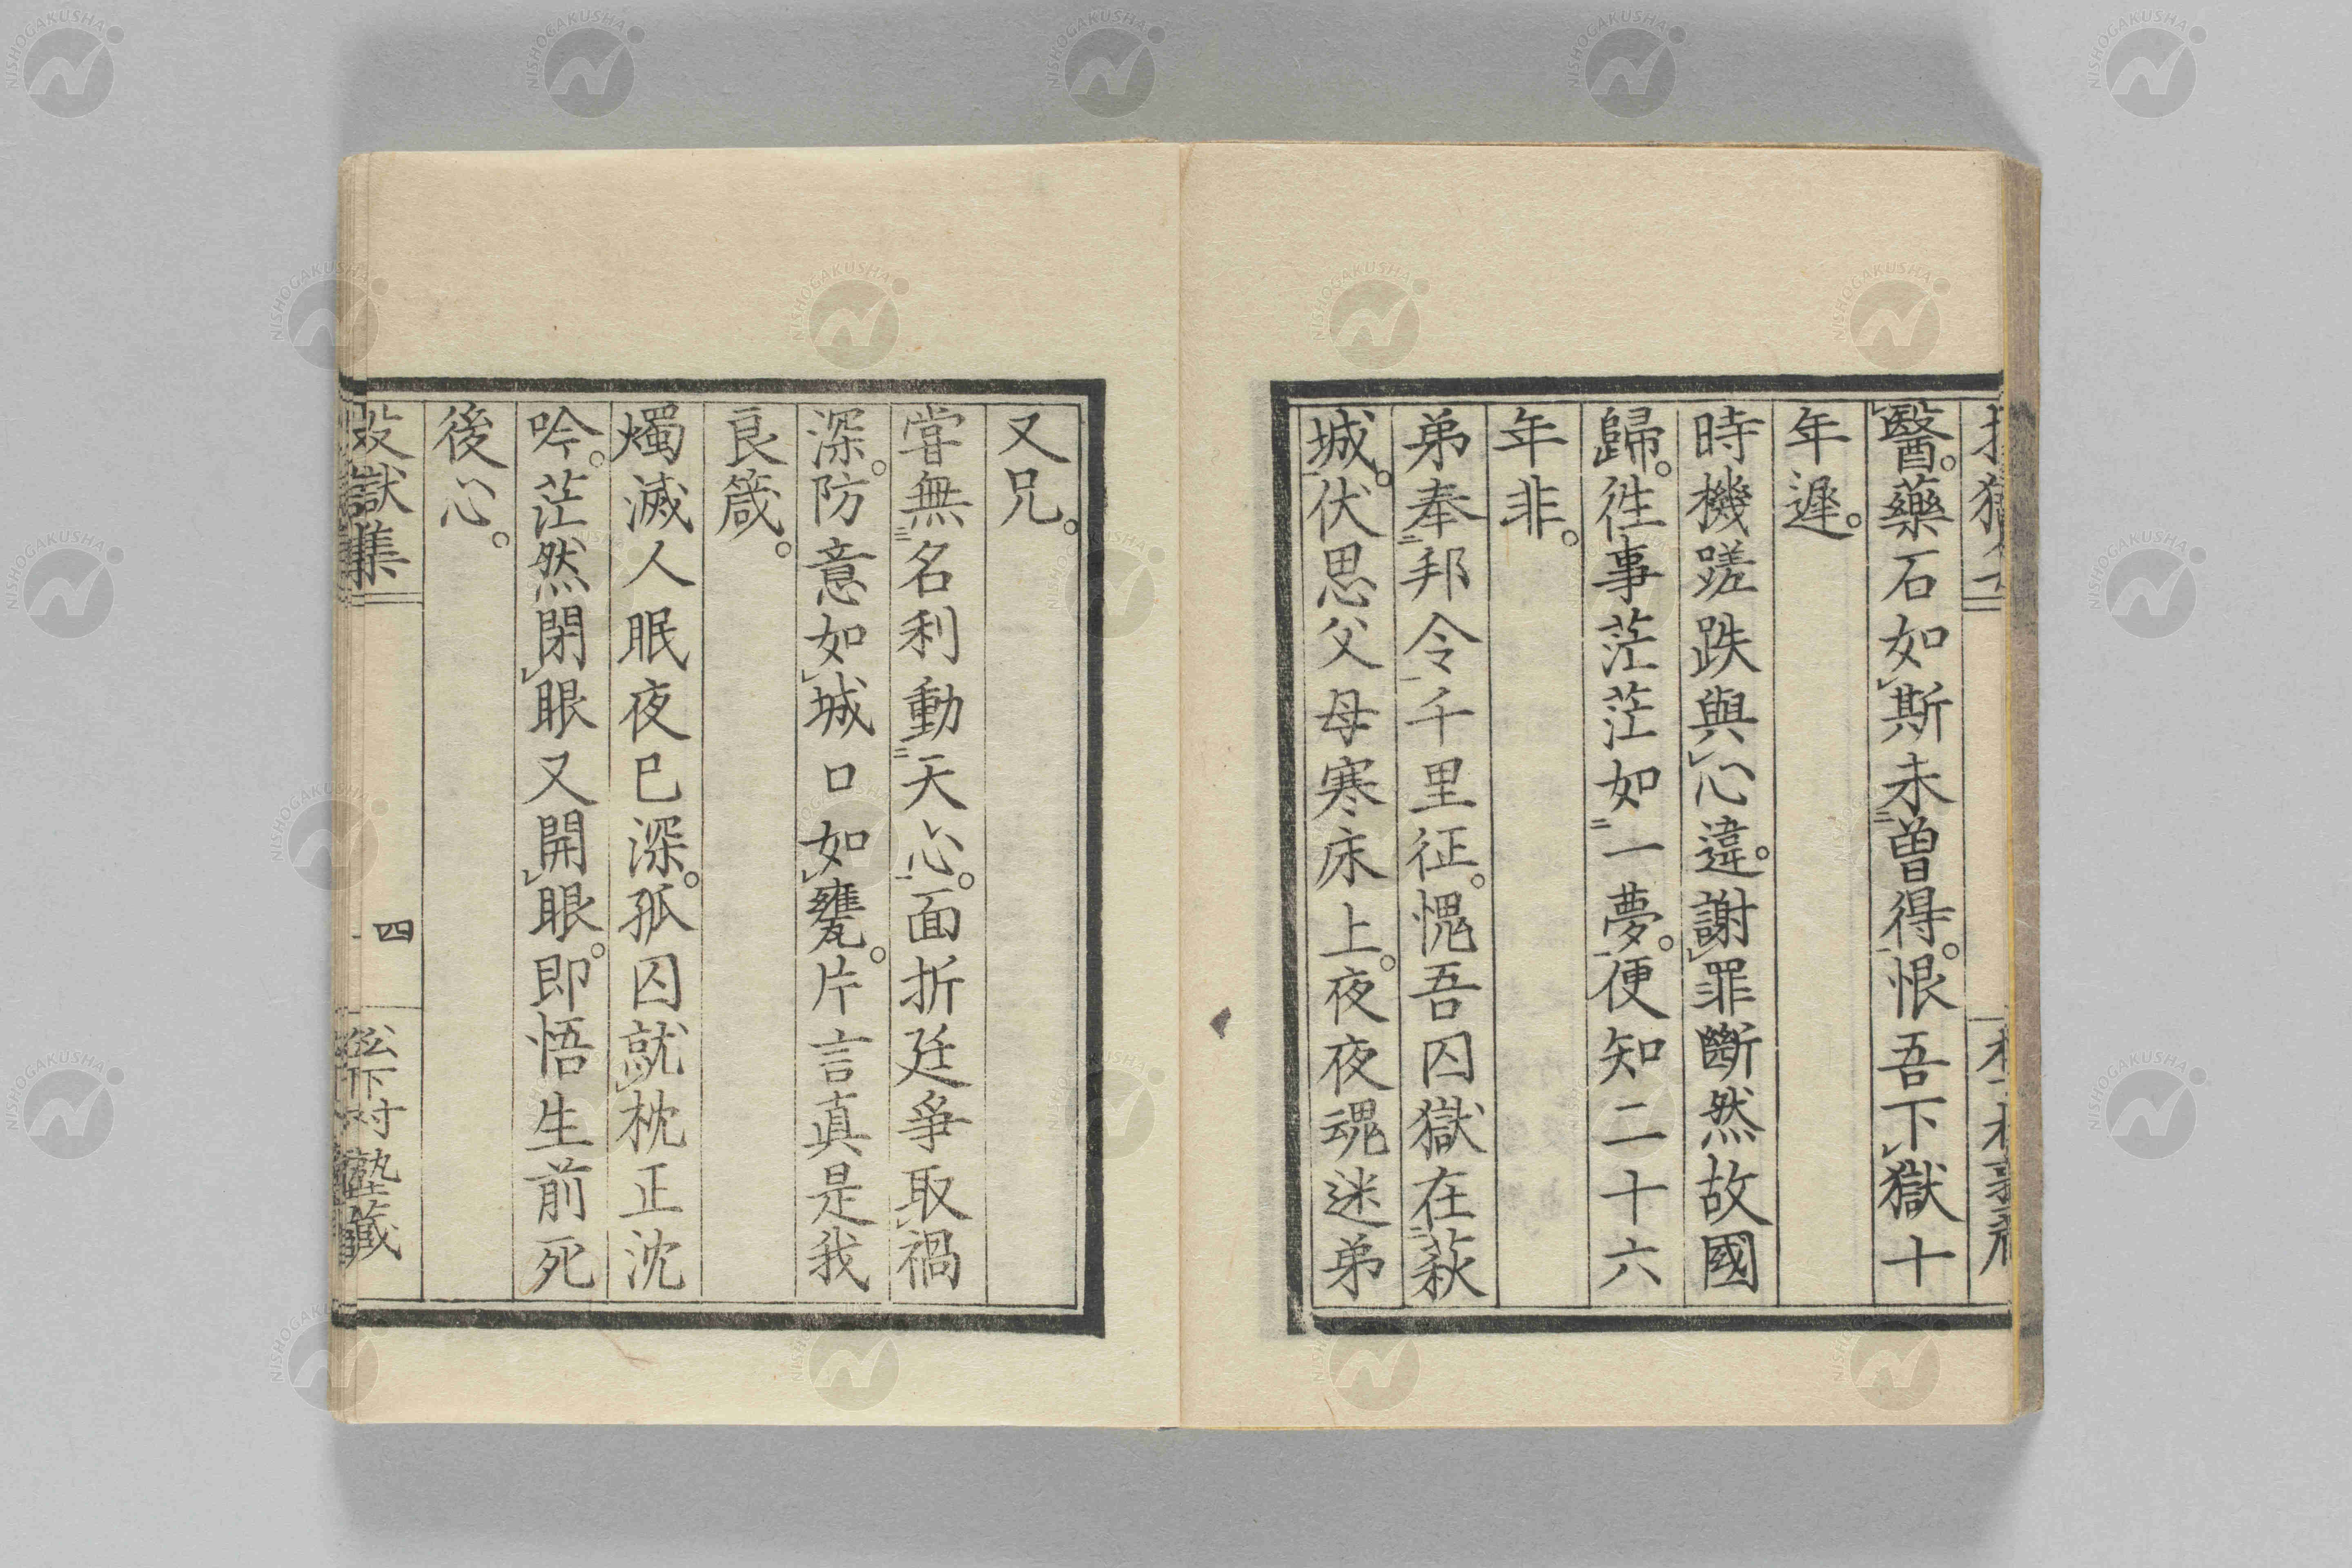 醫。藥石如斯未曽得。恨吾下獄十
年遲。
時機蹉跌與心違。謝罪斷然故國
歸。徃事茫茫如一夢。便知二十六
年非。
弟奉邦令千里征。愧吾囚獄在萩
城。伏思父母寒床上。夜夜魂迷弟
又兄。
甞無名利動天心。面折廷爭取禍
深。防意如城口如甕。片言眞是我
良箴。
燭滅人眠夜已深。孤囚就枕正沈
吟。茫然閉眼又開眼。即悟生前死
後心。
投獄集
四
松下村塾藏
NISHOGAKUSHA